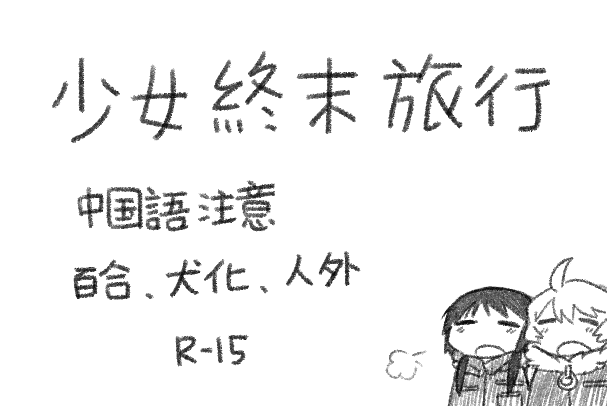 少女終末旅行
中国語注意
百合、犬化、人外
R-15